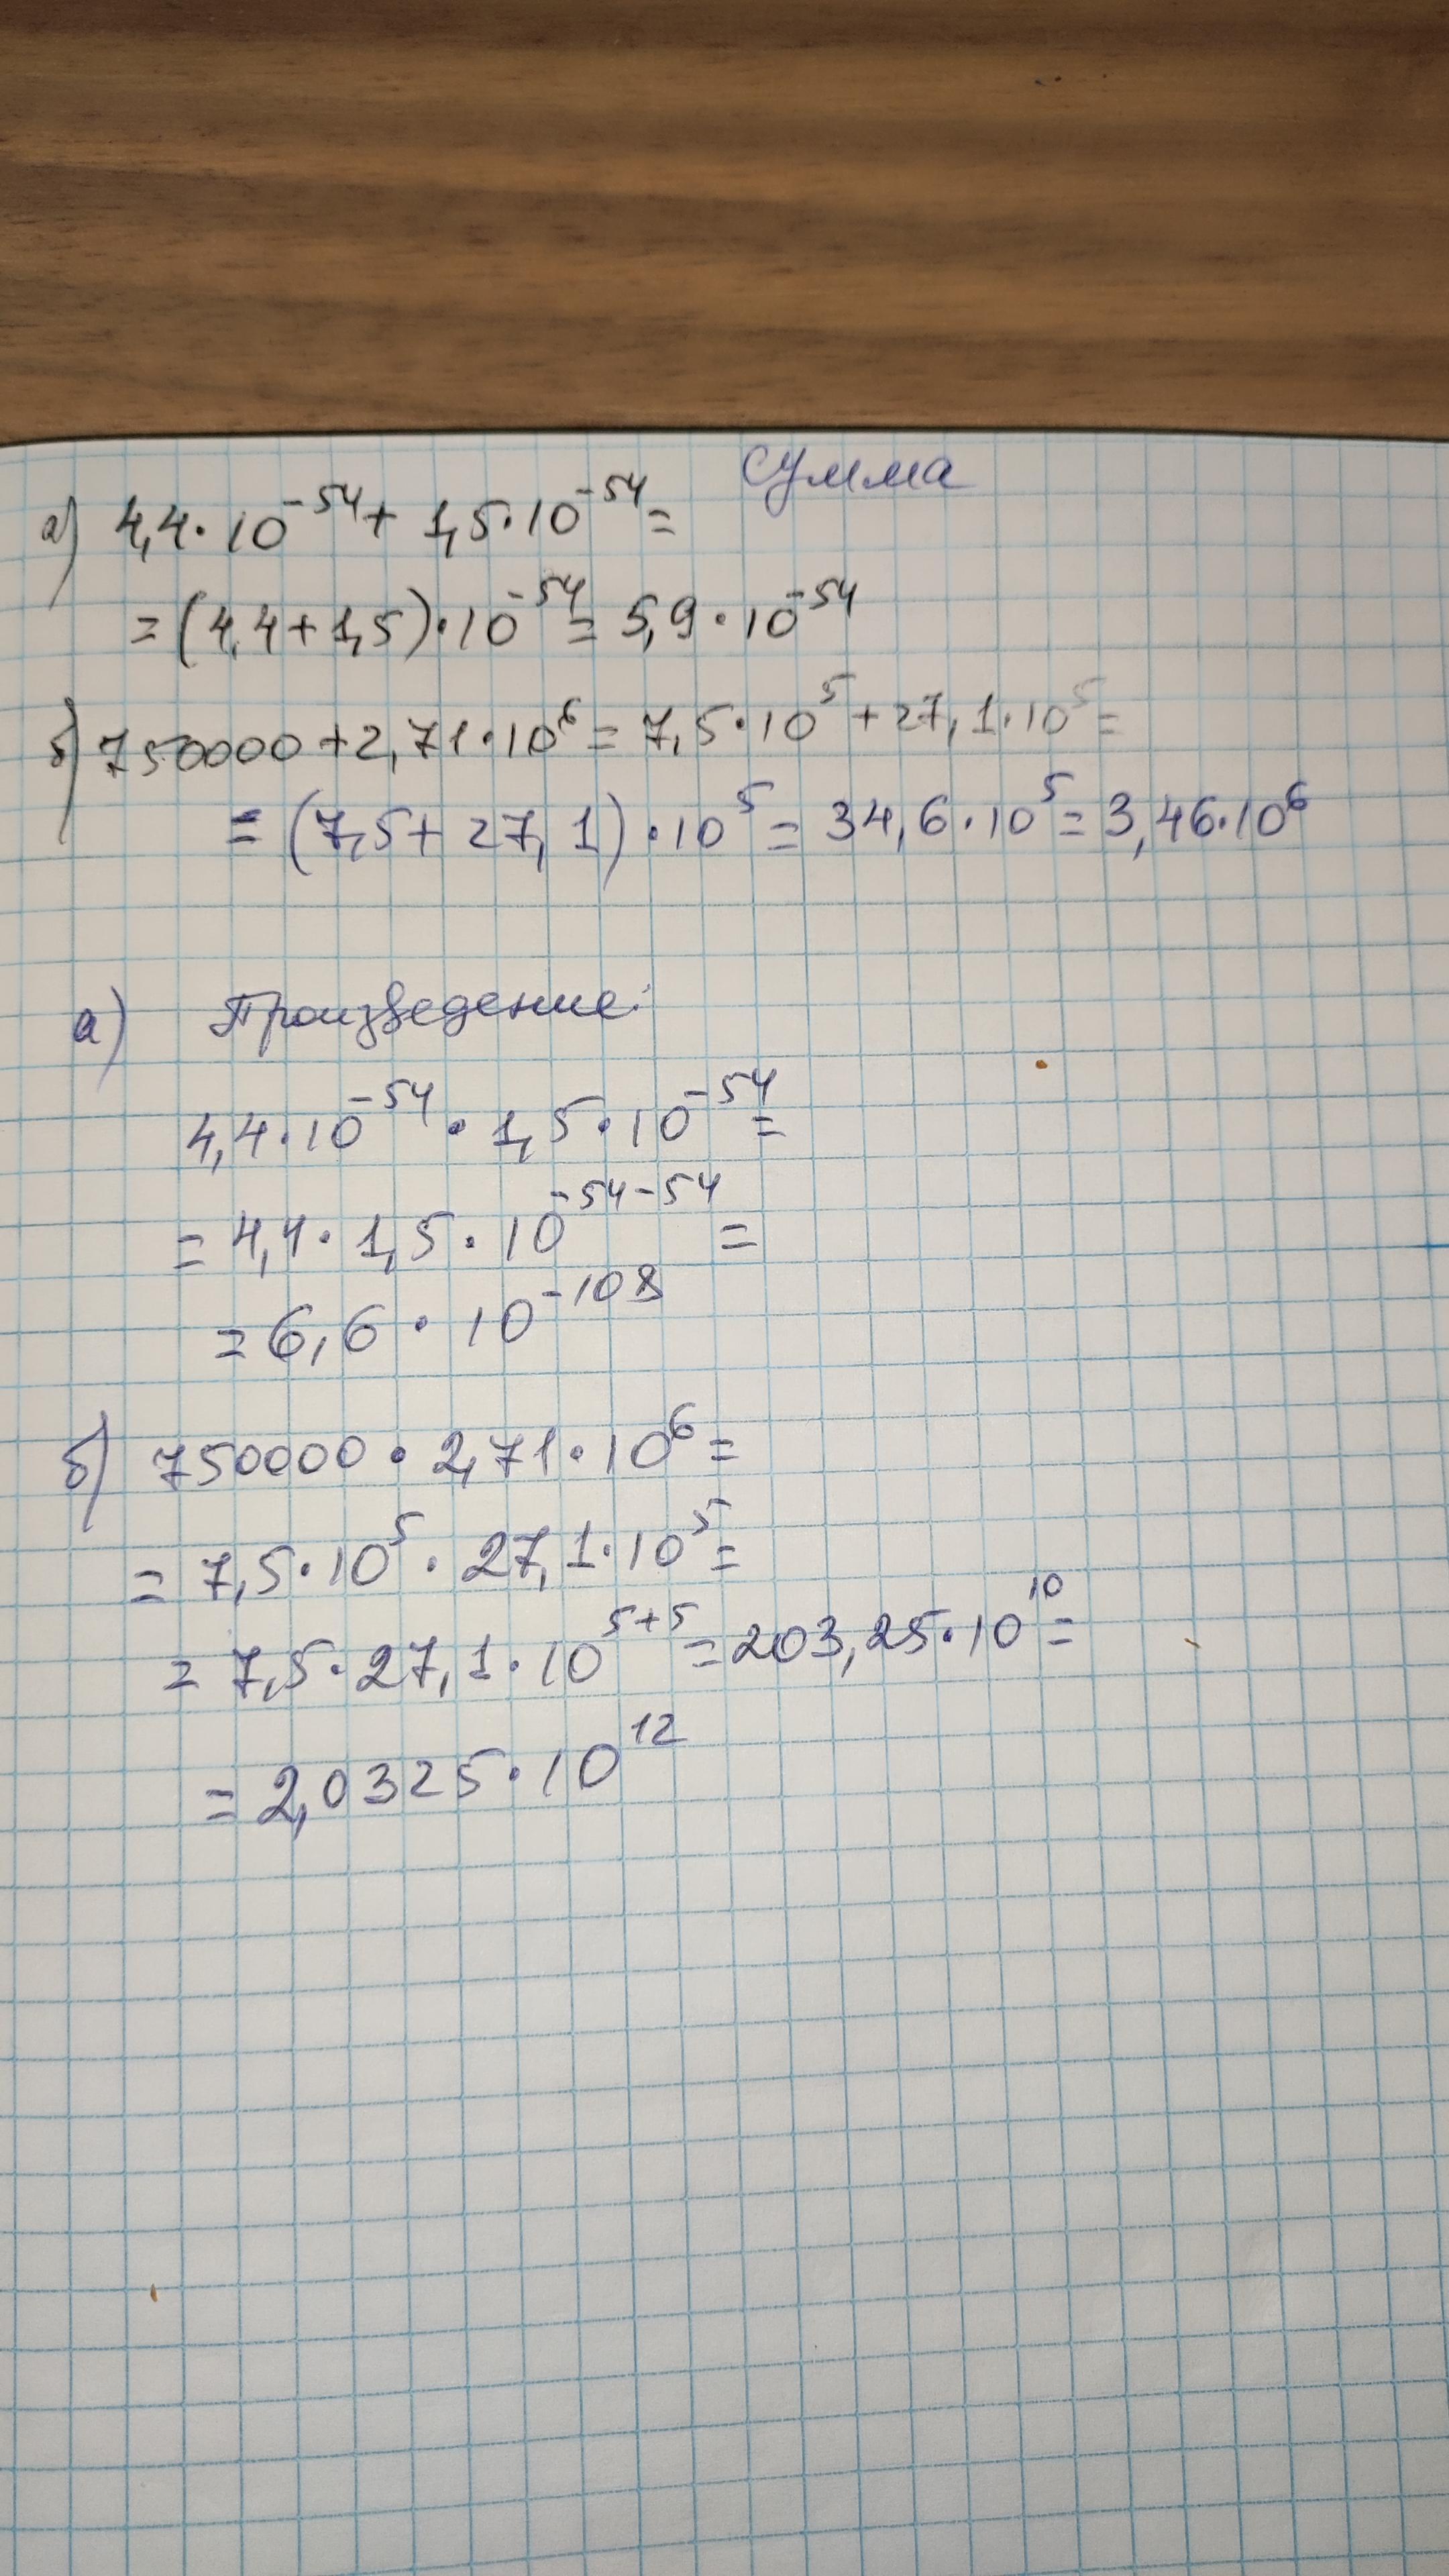 Сумма
а) 4,4·10⁻⁵⁴ + 1,5·10⁻⁵⁴ =
= (4,4+1,5)·10⁻⁵⁴ = 5,9·10⁻⁵⁴
б) 750000 + 2,71·10⁶ = 7,5·10⁵ + 27,1·10⁵ =
= (7,5 + 27,1)·10⁵ = 34,6·10⁵ = 3,46·10⁶
а) Произведение:
4,4·10⁻⁵⁴ · 1,5·10⁻⁵⁴ =
= 4,4·1,5·10⁻⁵⁴⁻⁵⁴ =
= 6,6·10⁻¹⁰⁸
б) 750000 · 2,71·10⁶ =
= 7,5·10⁵ · 27,1·10⁵ =
= 7,5·27,1·10⁵⁺⁵ = 203,25·10¹⁰ =
= 2,0325·10¹²